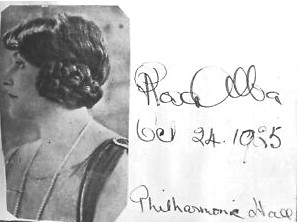 Alba
Oct 24. 1935
Philharmonic Hall